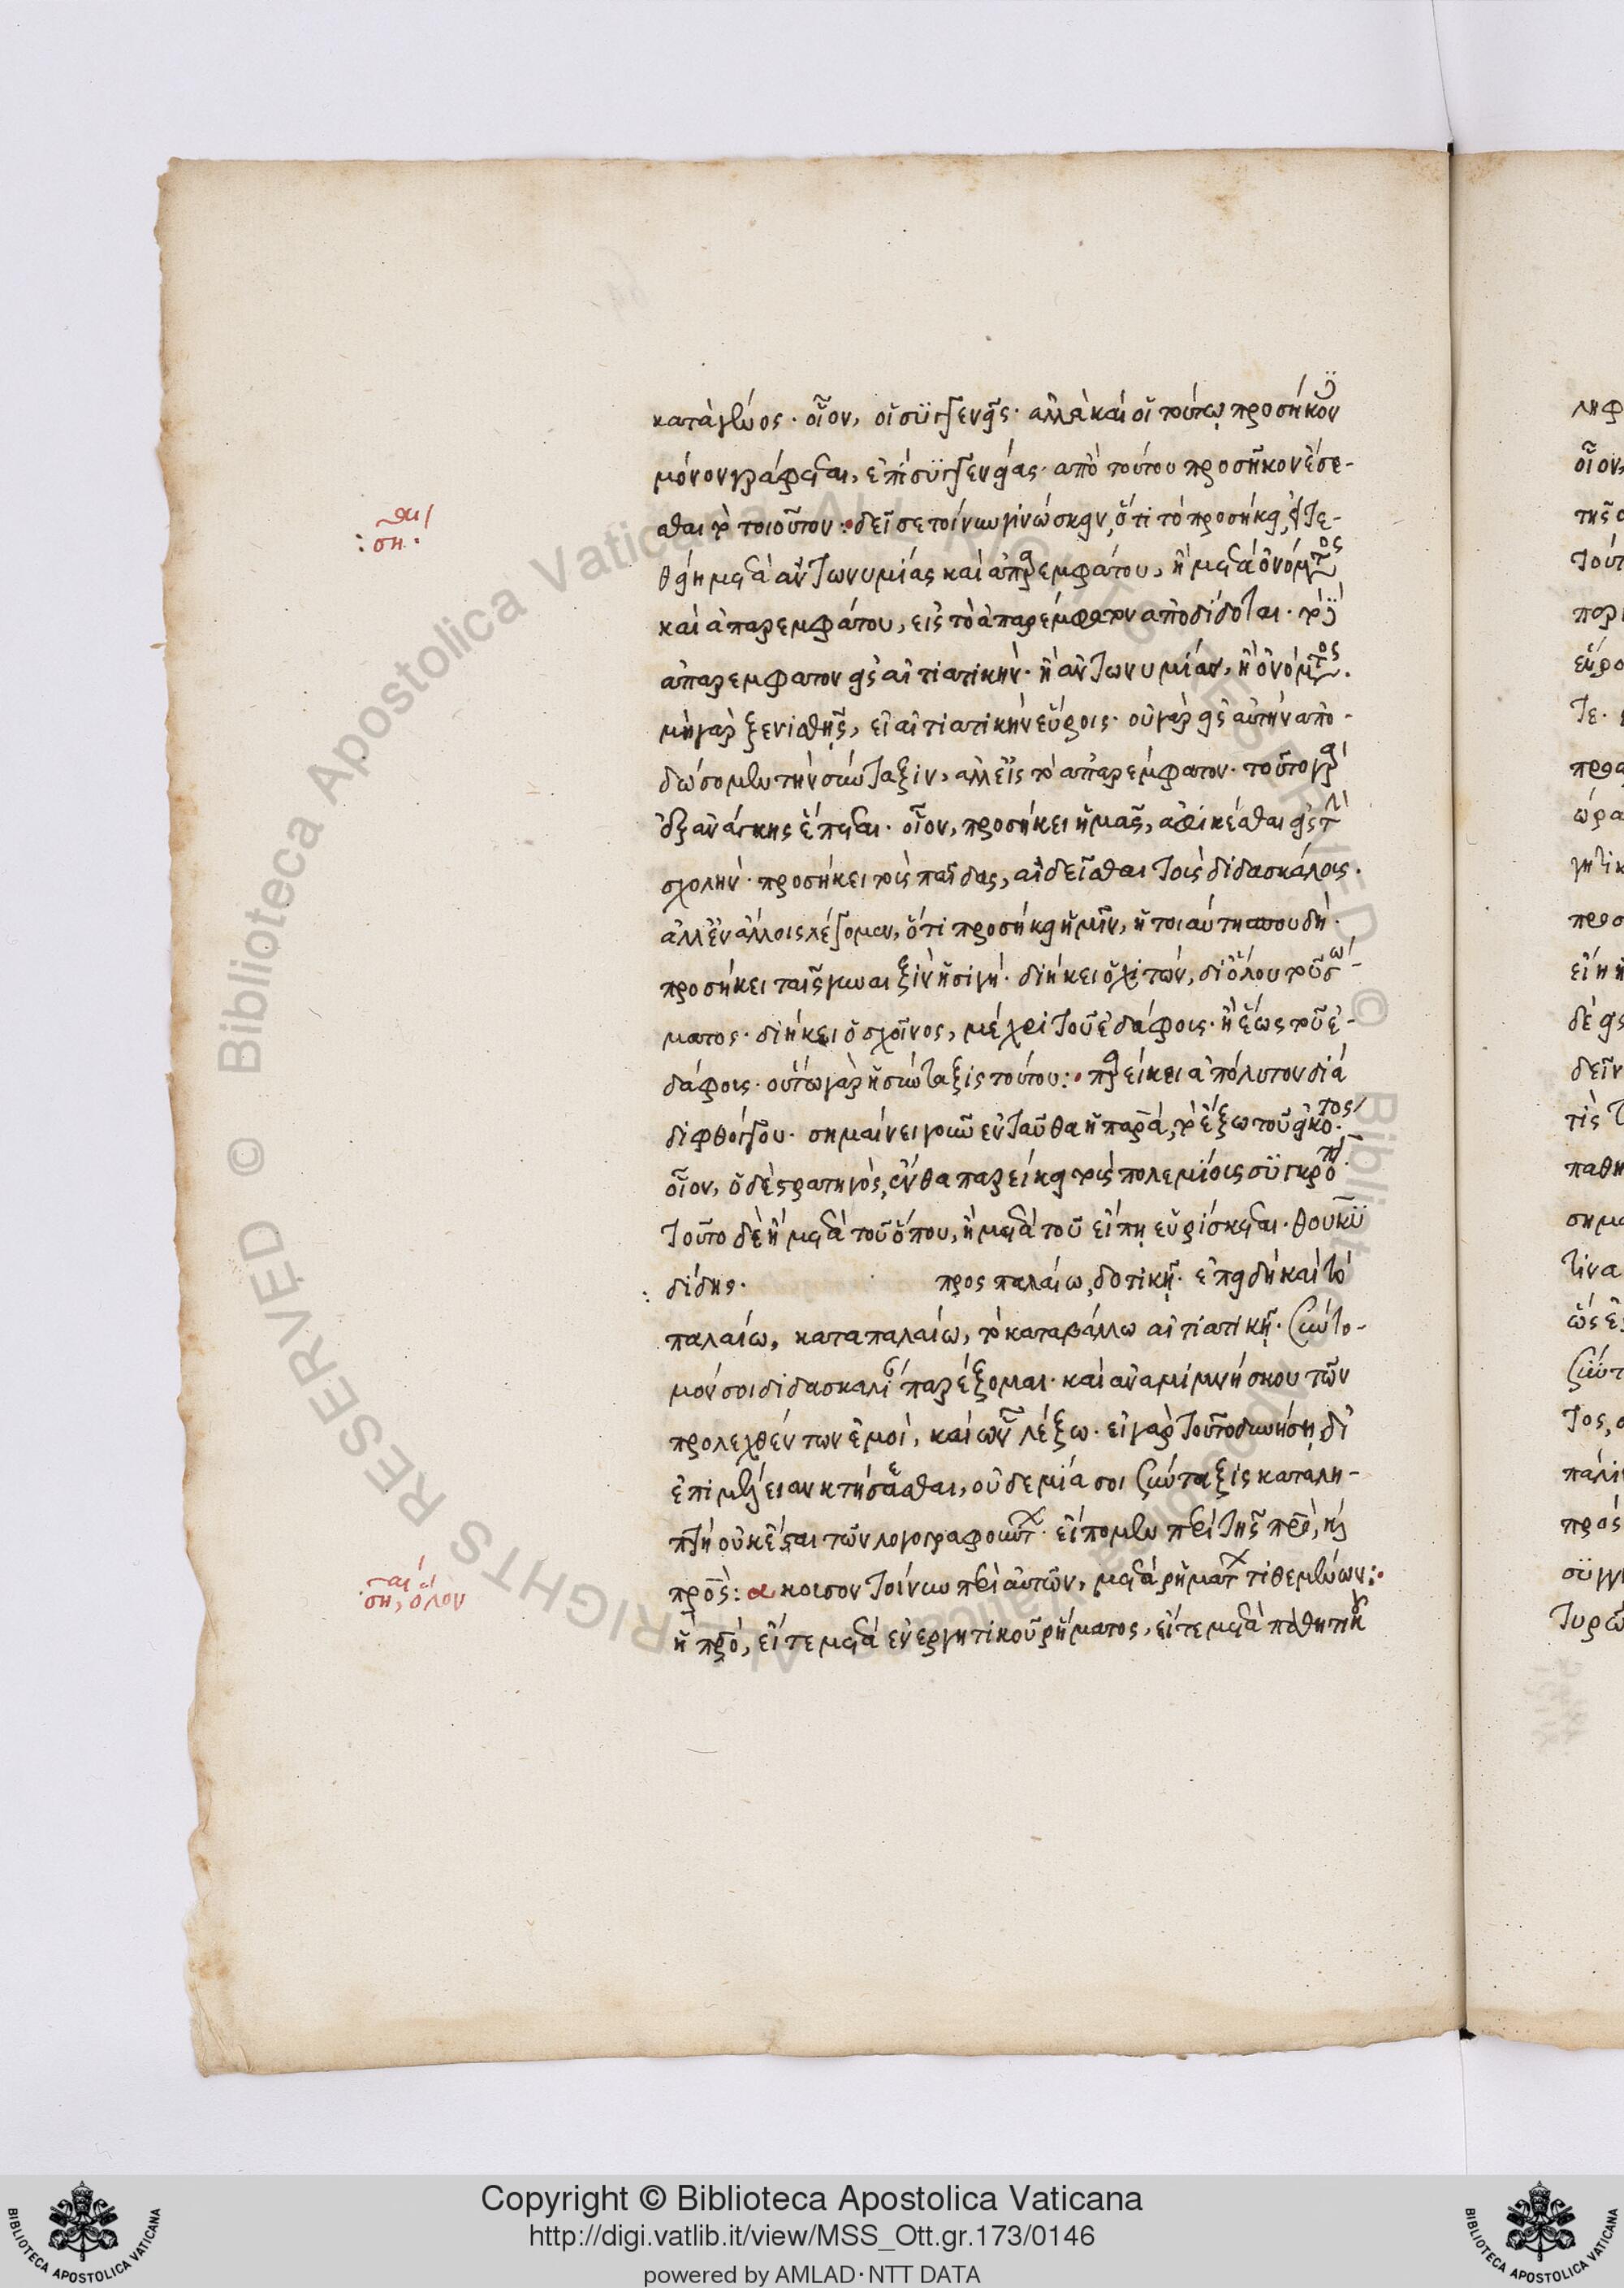 κατὰ γένος. οἷον, οἱ συγγενεῖς. ἀλλὰ καὶ οἱ τούτῳ προσήκον
μόνον γράφεται, ἐπὶ συγγενείας. ἀπὸ τούτου προσῆκον ἔσε-
σθαι τὸ τοιοῦτον: δεῖ σε τοίνυν γινώσκειν, ὅτι τὸ προσήκει, εἰ τε-
θείη μετὰ ἀντωνυμίας καὶ ἀπαρεμφάτου, ἢ μετὰ ὀνόματος
σθαι
: ση.
καὶ ἀπαρεμφάτου, εἰς τὸ ἀπαρέμφατον ἀποδίδοται. τὸ
ἀπαρεμφατον εἰς αἰτιατικήν. ἢ ἀντωνυμίαν, ἢ ὀνόματος.
μὴ γὰρ ξενισθῇς, εἰ αἰτιατικὴν εὕροις. οὐ γὰρ εἰς αὐτὴν ἀπο-
δώσομεν τὴν σύνταξιν, ἀλλ' εἰς τὸ ἀπαρέμφατον. τοῦτο γὰρ
ἐξ ἀνάγκης ἕπεται. οἷον, προσήκει ἡμᾶς, ἀφικέσθαι εἰς τὴν
σχολήν. προσήκει τοὺς παῖδας, αἰδεῖσθαι τοῖς διδασκάλοις.
ἀλλ' ἐν ἄλλοις λέγομεν, ὅτι προσήκει ἡμῖν, ἡ τοιαύτη σπουδή.
προσήκει ταῖς γυναιξὶν ἡ σιγή. διήκει ὁ χιτών, δι' ὅλου τοῦ σώ-
ματος. διήκει ὁ σχοῖνος, μέχρι τοῦ ἐδάφους. ἢ ἕως τοῦ ἐ-
δάφους. οὕτω γὰρ ἡ σύνταξις τούτου: παρείκει ἀπόλυτον διὰ
διφθόγγου. σημαίνει γοῦν ἐνταῦθα ἡ παρὰ, τὸ ἔξω τοῦ εἰκότος.
οἷον, ὁ δὲ στρατηγὸς, ἔνθα παρείκει τοῖς πολεμίοις συγκρο
τοῦτο δὲ ἢ μετὰ τοῦ ὅπου, ἢ μετὰ τοῦ εἴπῃ εὑρίσκεται. θουκυ
δίδης. προσπαλαίω, δοτικῇ. ἐπειδὴ καὶ τὸ
παλαίω, καταπαλαίω, τὸ καταβάλλω αἰτιατικῇ. σύντο-
μόν σοι διδασκαλίαν παρέξομαι. καὶ ἀναμιμνήσκου τῶν
προλεχθέντων ἐμοὶ, καὶ ὧν λέξω. εἰ γὰρ τοῦτο δυνήσῃ δι'
ἐπιμέλειαν κτήσασθαι, οὐδεμία σοι σύνταξις καταλη-
πτὴ οὐκ ἔσται τῶν λογογραφούντων. εἴπομεν περὶ τῆς πρὸ, καὶ
πρός: ἄκουσον τοίνυν περὶ αὐτῶν, μετὰ ῥημάτων τιθεμένων:
ἡ πρὸ, εἴτε μετὰ ἐνεργητικοῦ ῥήματος, εἴτε μετὰ παθητικοῦ
ση, ὅλον
Copyright © Biblioteca Apostolica Vaticana
http://digi.vatlib.it/view/MSS_Ott.gr.173/0146
powered by AMLAD·NTT DATA